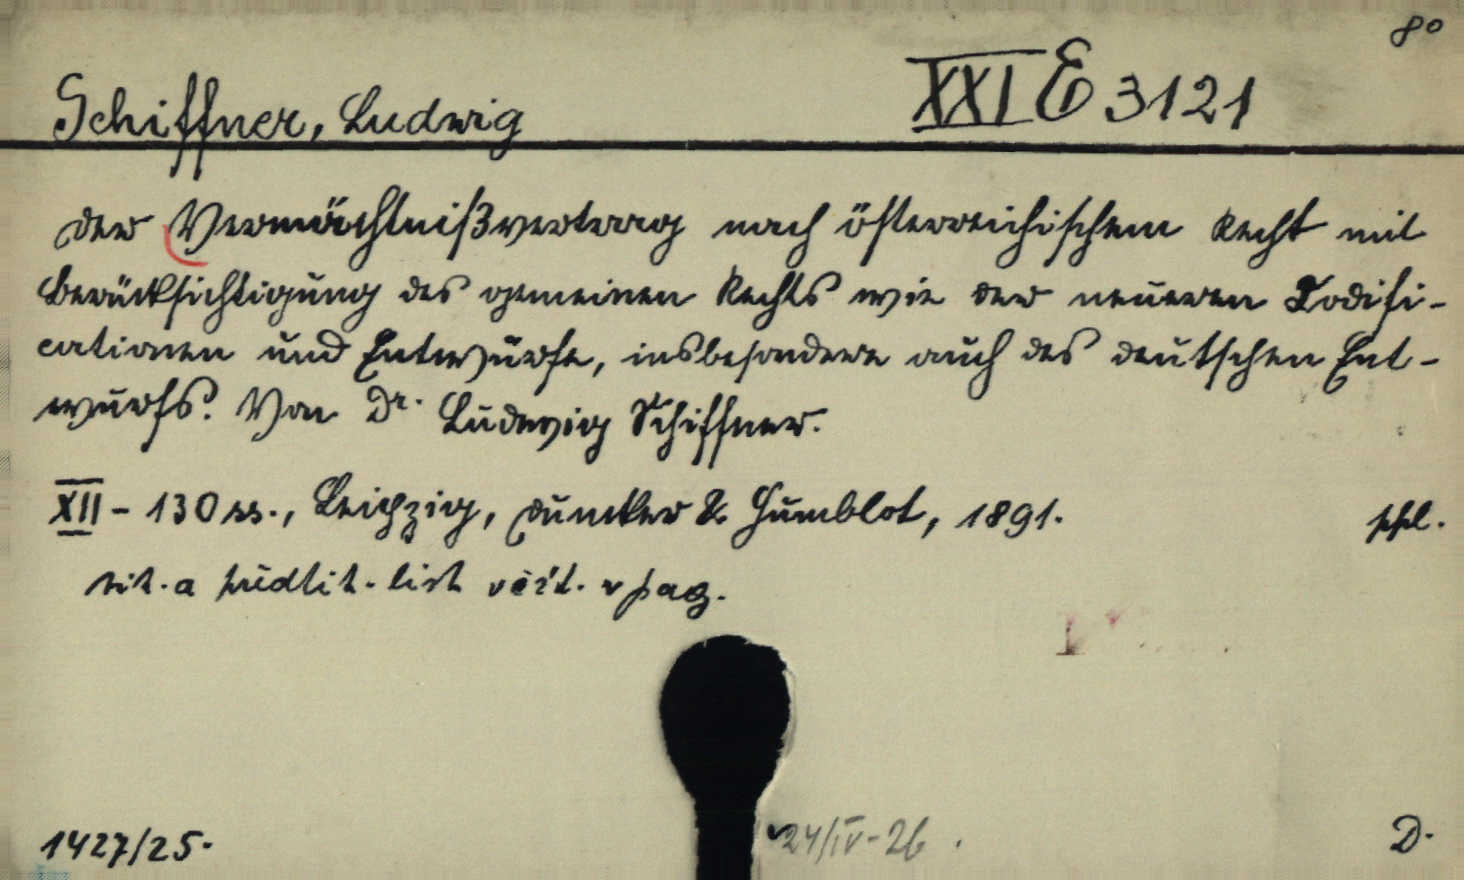 8°
Schiffner, Ludwig XXI E 3121
Der Vermächtnißvertrag nach österreichischem Recht mit
Berücksichtigung des gemeinen Rechts wie der neueren Codifi-
cationen und Entwürfe, insbesondere auch des deutschen Ent-
wurfs. Von Dr. Ludwig Schiffner.
XII - 130 ss., Leipzig, Duncker & Humblot, 1891.
tit. a list pag.
1427/25. 24/IV-26. D.